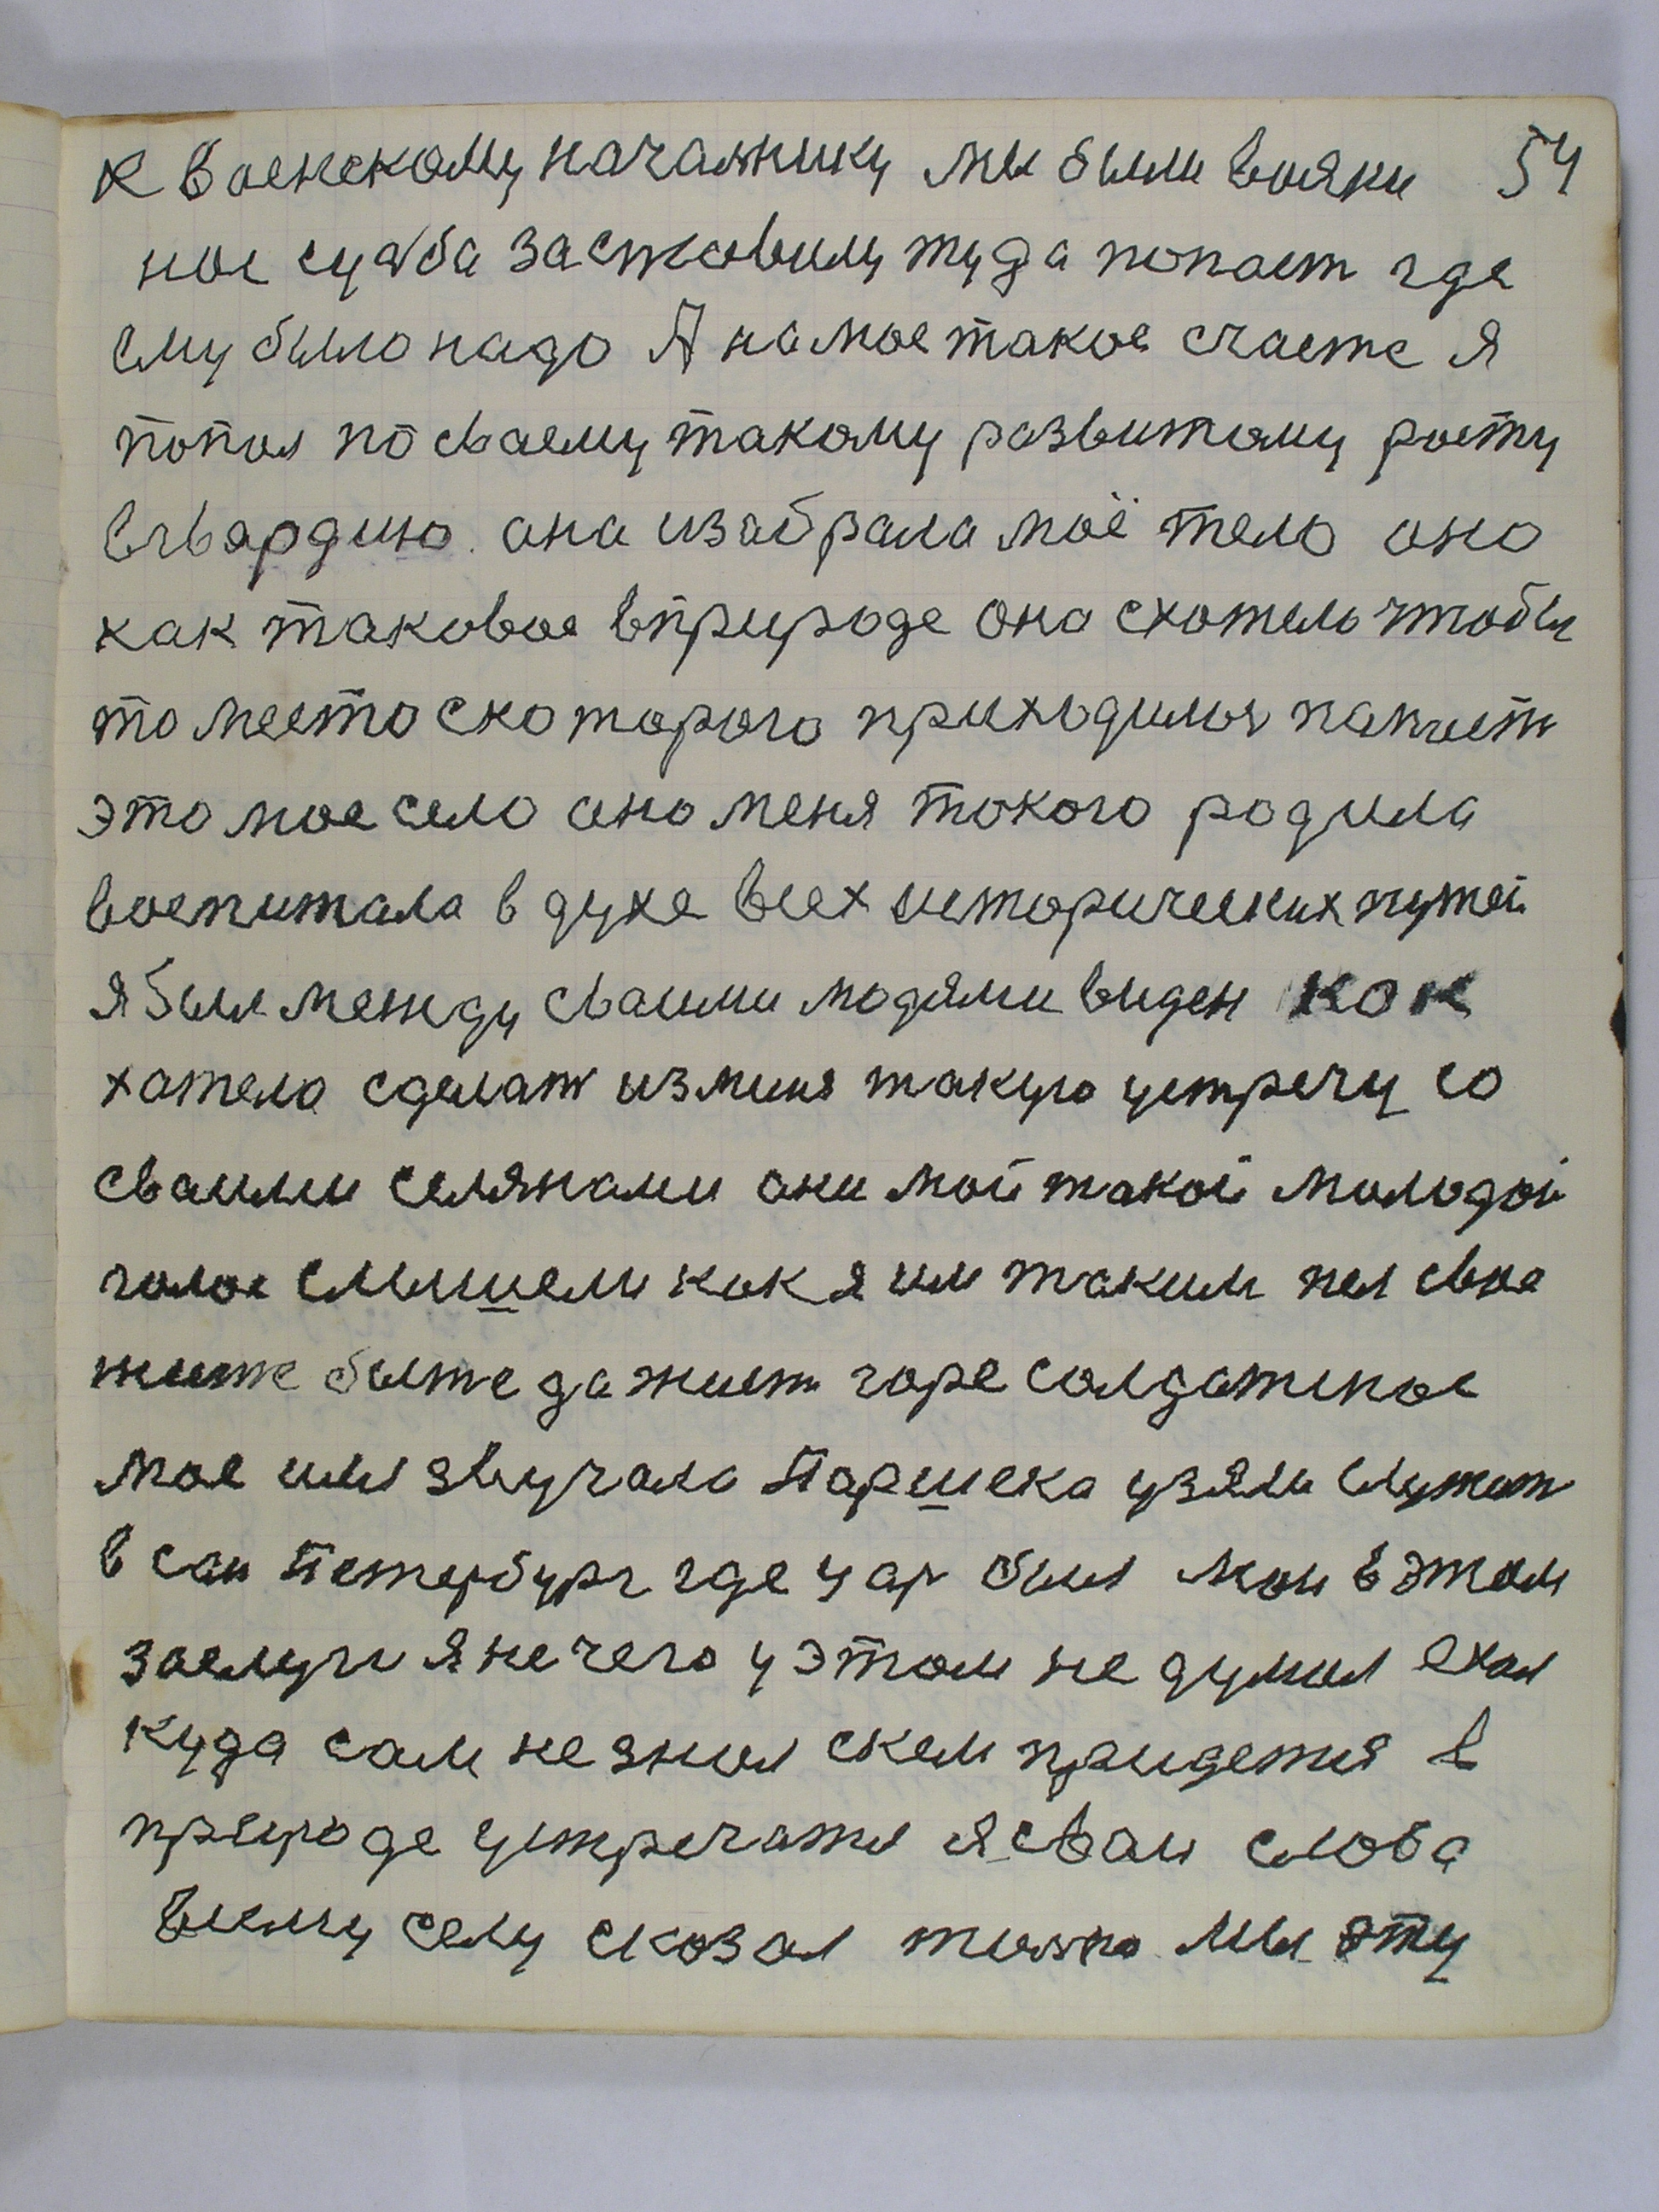 к военскому начальнику мы были вояки 54
нас судба заставилу туда попаст где
ему было надо А на мое такое счасте я
попал по сваему такому развитому росту
вгвардию. ана изабрала моё тело оно
как таковое вприроде оно схотело чтобы
то место скоторого приходилос папаст
это мое село ано меня токого родила
воспитала в духе всех исторических путей
я был между сваими людями виден как
хатело сделат измина такую устречу со
сваими селянами ани мой такой молодой
голос слышели как я им таким пел свое
житё бытё да жист горе солдатское
мое имя звучало Паршека узяли служит
в сан Петербург где цар был мои в этом
заслуги я нечего у этом не думал ехал
куда сам не знал скем придется в
природе устречатся я сваи слова
всему селу сказал толко мы эту